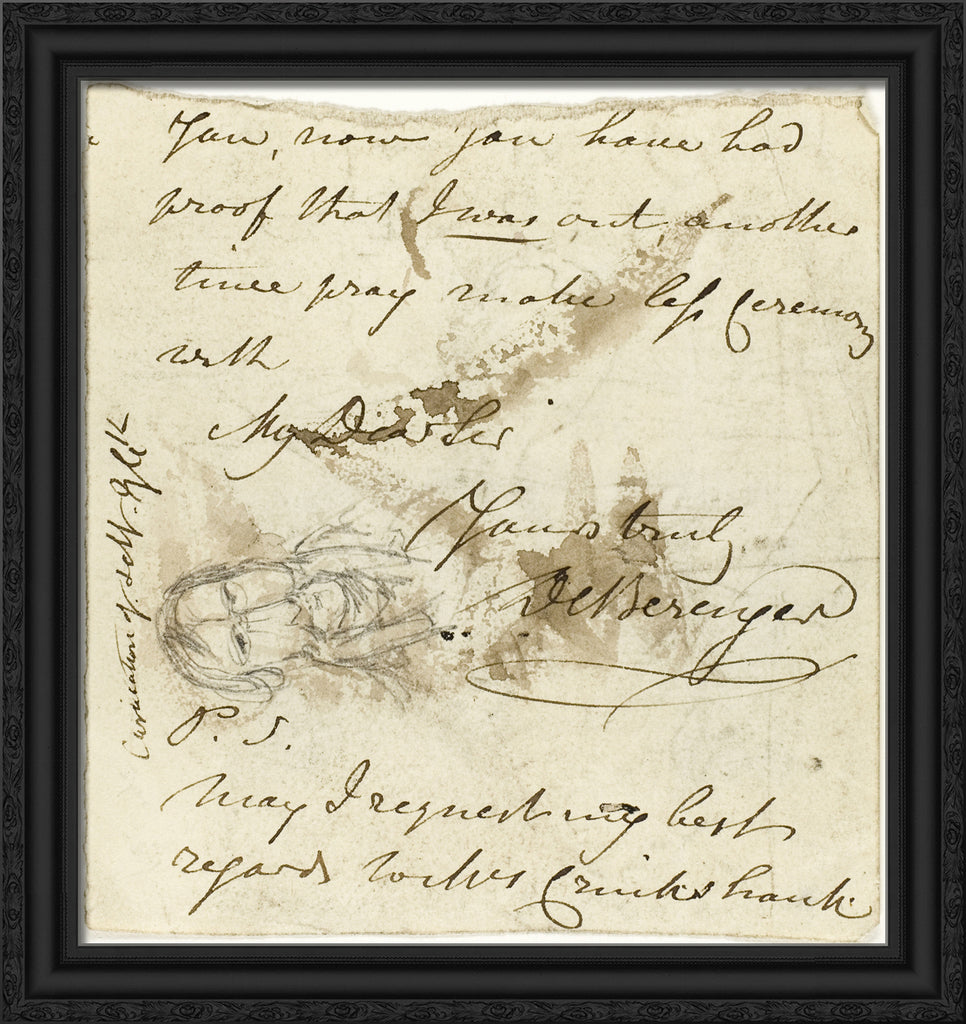 You, now you have had
proof that I was out, another
time pray make less ceremony
with
My Dear Sir
Yours truly
De Berenger
P. S.
May I request my best
regards to Mrs Cruikshank
of self.